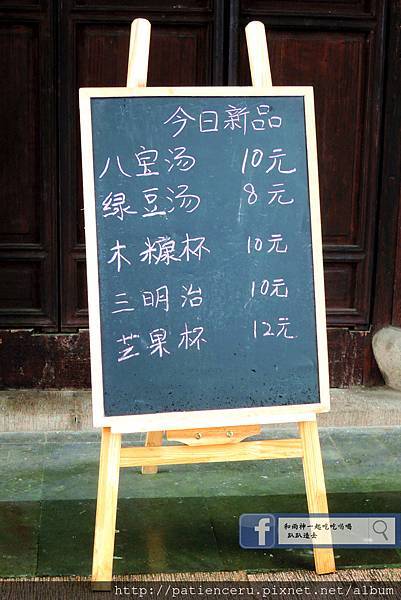 今日新品
八宝汤 10元
绿豆汤 8元
木糠杯 10元
三明治 10元
芒果杯 12元
和尚神一起吃吃喝喝
趴趴造去
http://patienceru.pixnet.net/album